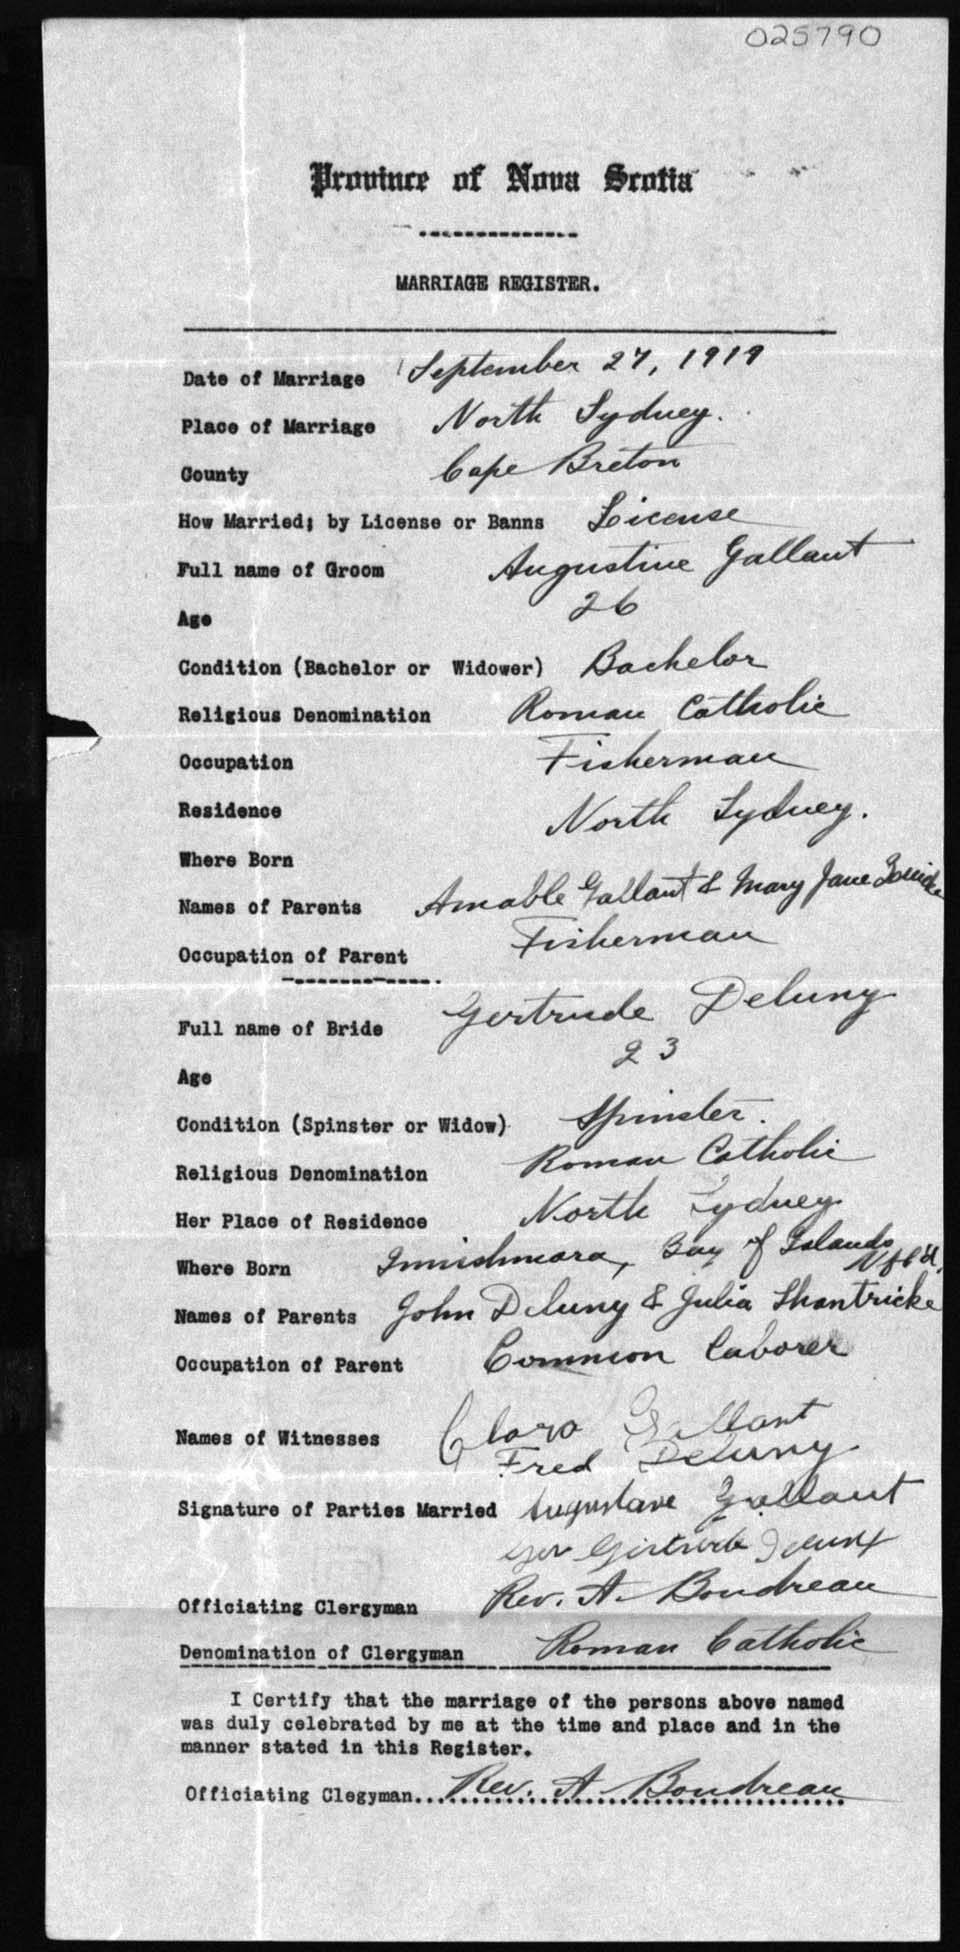 025790
Province of Nova Scotia
MARRIAGE REGISTER.
Date of Marriage September 27, 1919
Place of Marriage North Sydney.
County Cape Breton
How Married; by License or Banns License
Full name of Groom Augustine Gallant
Age 26
Condition (Bachelor or Widower) Bachelor
Religious Denomination Roman Catholic
Occupation Fisherman
Residence North Sydney.
Where Born
Names of Parents Amable Gallant & Mary Jane
Occupation of Parent Fisherman
Full name of Bride Gertrude Deluny
Age 23
Condition (Spinster or Widow) Spinster.
Religious Denomination Roman Catholic
Her Place of Residence North Sydney
Where Born Innishmara, Bay of Islands Nfl'd.
Names of Parents John Deluny & Julia Shantricke
Occupation of Parent Common Laborer
Names of Witnesses Clara Gallant
Fred Deluny
Signature of Parties Married Gallant
Officiating Clergyman Rev. A. Boudreau
Denomination of Clergyman Roman Catholic
I Certify that the marriage of the persons above named
was duly celebrated by me at the time and place and in the
manner stated in this Register.
Officiating Clegyman.. Rev. A. Boudreau